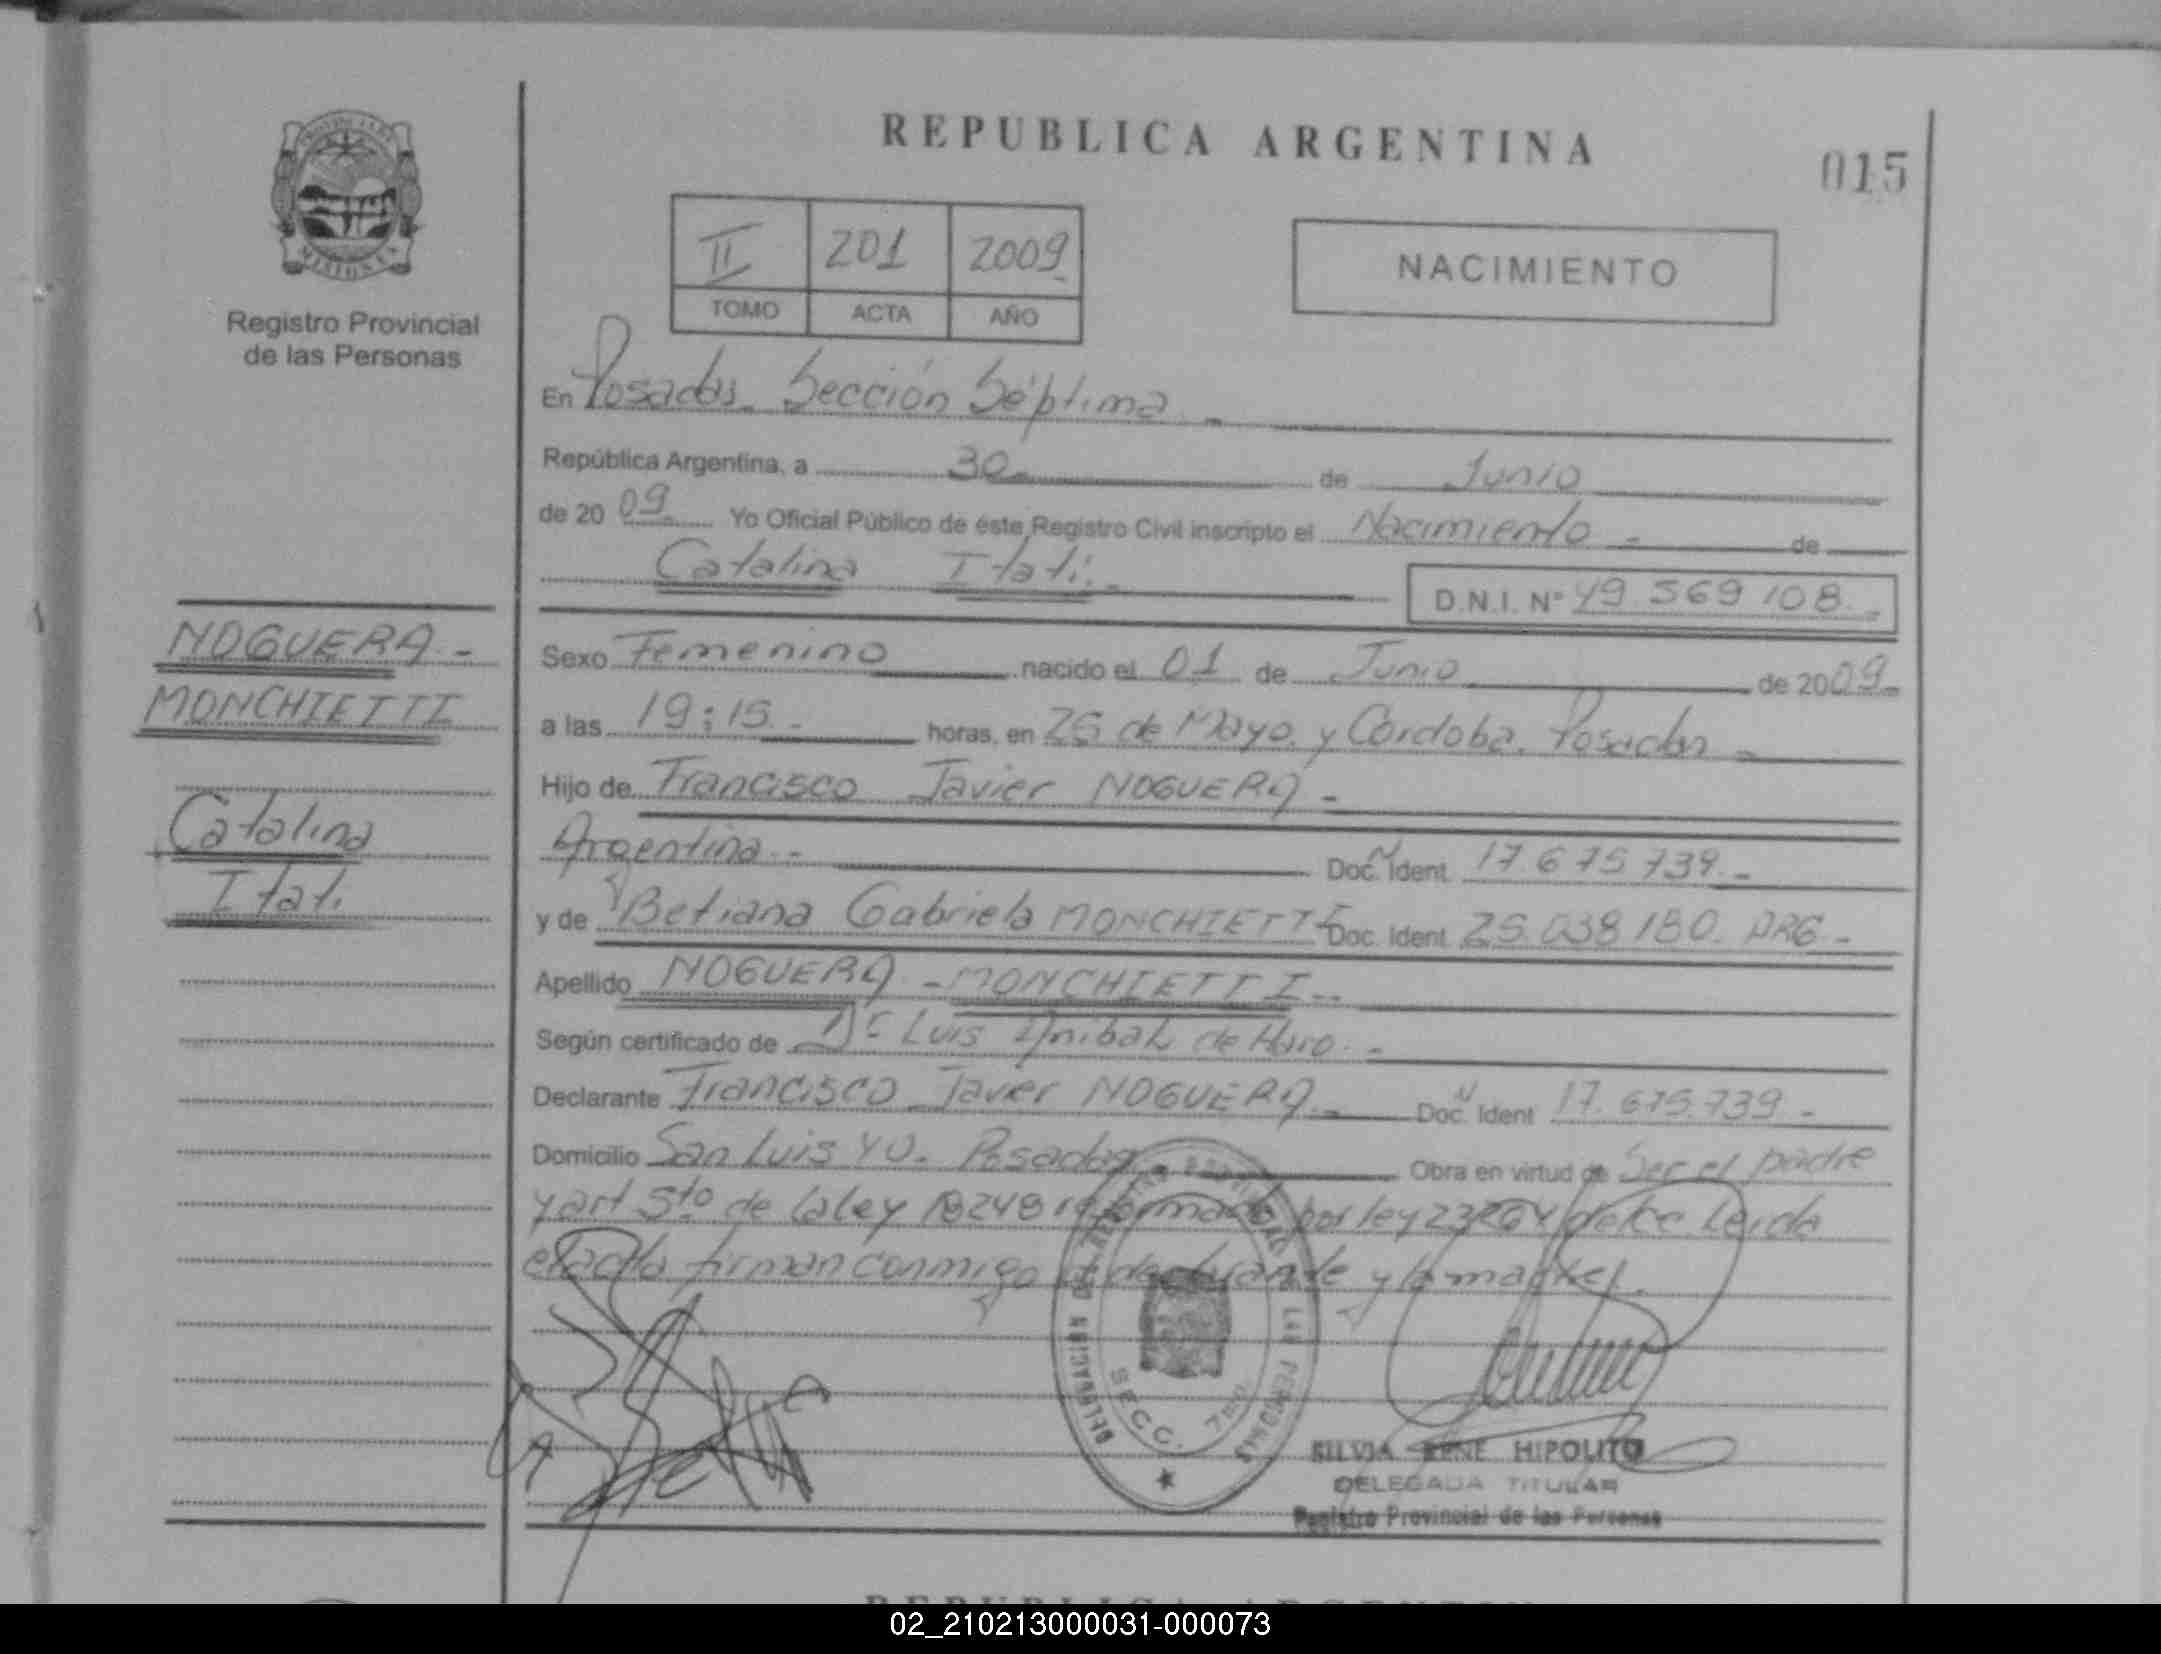 REPUBLICA ARGENTINA
015
PROVINCIA DE
MISIONES
Registro Provincial
de las Personas
II 201 2009
TOMO ACTA AÑO
NACIMIENTO
En Posadas Sección Séptima
República Argentina, a 30 de Junio
de 2009 Yo Oficial Público de éste Registro Civil inscripto el Nacimiento de
Catalina Itatí.
D.N.I. N° 49.569.108.
NOGUERA
MONCHIETTI
Catalina
Itatí.
Sexo Femenino nacido el 01 de Junio de 2009
a las 19:15 horas, en 25 de Mayo y Córdoba. Posadas
Hijo de Francisco Javier NOGUERA
Argentina Doc. Ident. 17.675.739.
y de Betiana Gabriela MONCHIETTI Doc. Ident. 25.038.180. ARG
Apellido NOGUERA - MONCHIETTI
Según certificado de Dr Luis Anibal de Haro
Declarante Francisco Javier NOGUERA Doc. Ident 17.675.739
Domicilio San Luis Posadas Obra en virtud de Ser el padre
y art 5to de la ley 18248 reformado por ley 23264 Leida
el acta firman conmigo el declarante y la madre.
DELEGACION DE LAS PERSONAS
SECC. 7ma.
SILVIA RENE HIPOLITO
DELEGADA TITULAR
Registro Provincial de las Personas
02_210213000031-000073